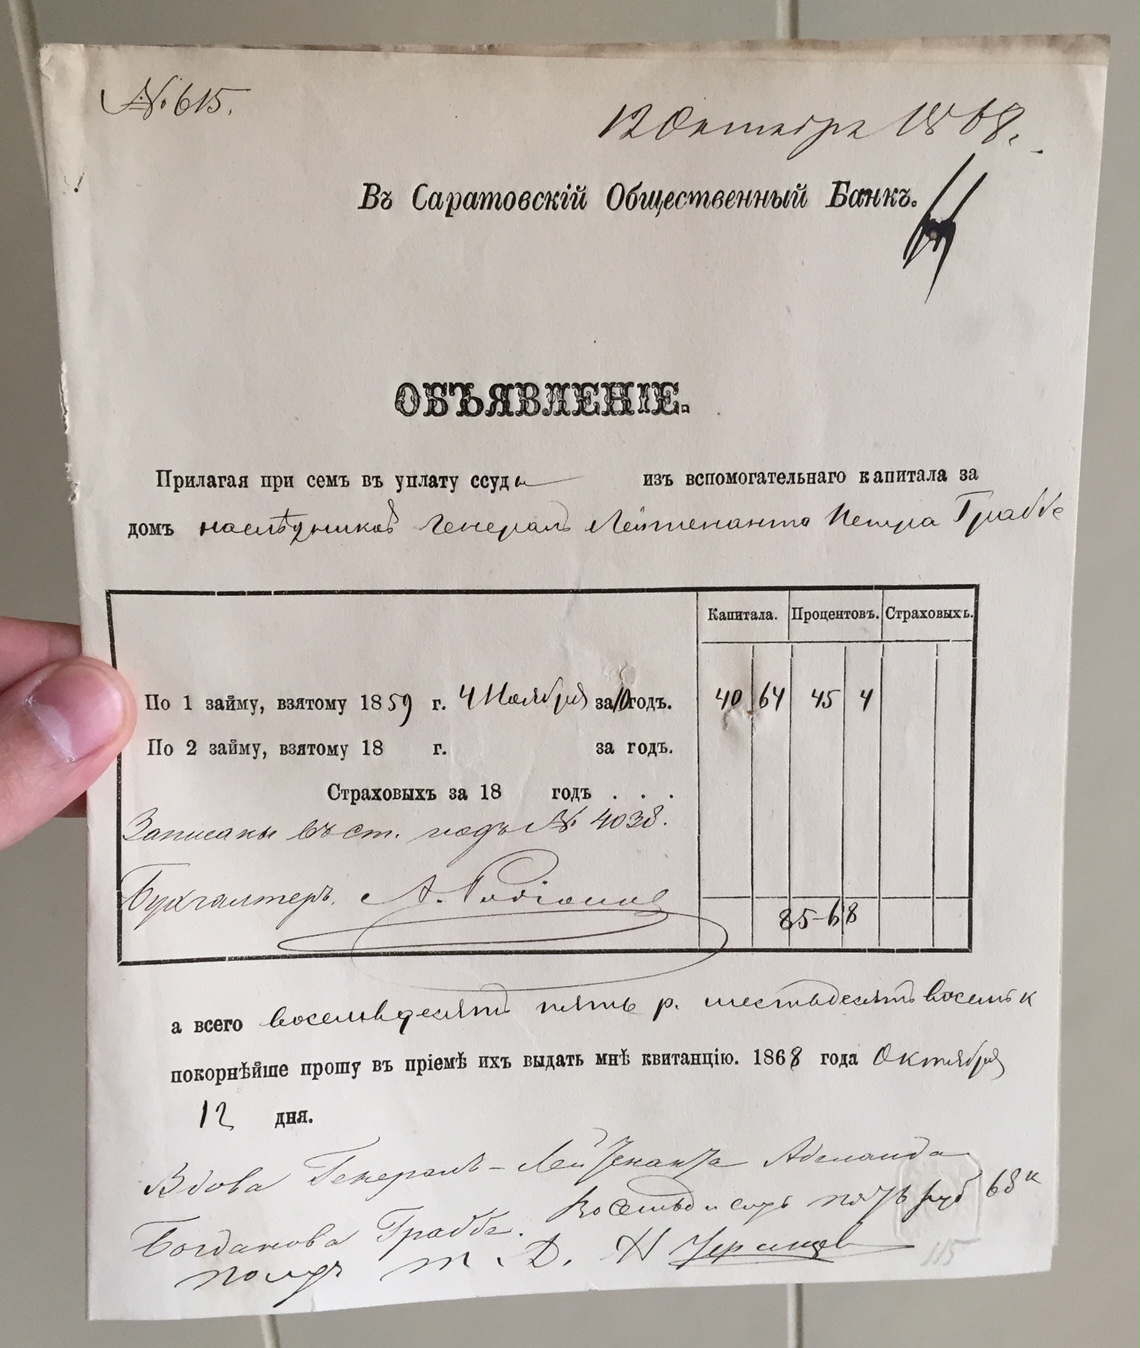 № 615.
12 Октября 1868.
Въ Саратовскій Общественный Банкъ.
ОБЪЯВЛЕНІЕ.
Прилагая при семъ въ уплату ссуды изъ вспомогательнаго капитала за
домъ наслѣдниковъ Генералъ Лейтенанта Петра Граббе
Капитала. Процентовъ. Страховыхъ.
По 1 займу, взятому 1859 г. 4 Ноября за 10 годъ. 40 64 45 4
По 2 займу, взятому 18 г. за годъ.
Страховыхъ за 18 годъ . . .
Записаны въ ст. подъ № 4038.
Бухгалтеръ. А.
85-68
а всего восемьдесятъ пять р. шестьдесятъ восемь к
покорнѣйше прошу въ пріемѣ ихъ выдать мнѣ квитанцію. 1868 года Октября
12 дня.
Вдова Генералъ-Лейтенанта Аделаида
Богданова Граббе.
пять руб 68 к
115